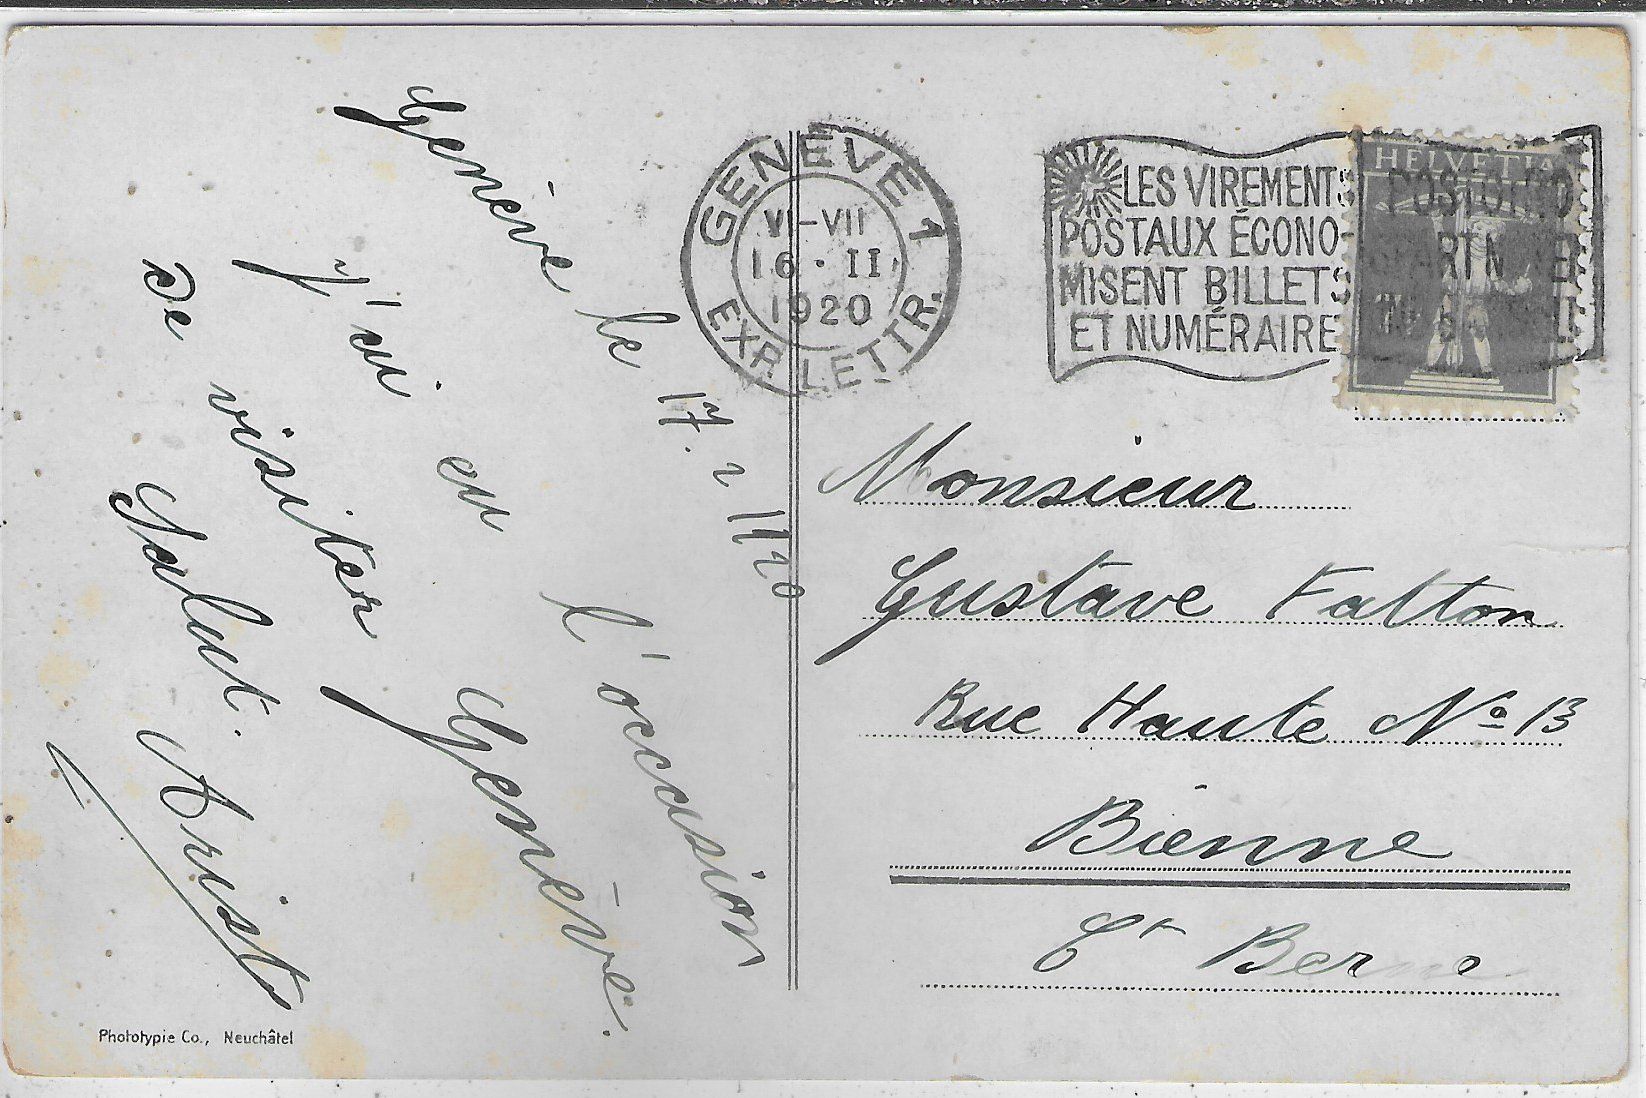 Genève le 17. 2 1920
J'ai eu l'occasion
de visiter Genève.
Salut. Arist
Phototypie Co., Neuchâtel
GENÈVE 1
VI-VII
16 · II
1920
EXP. LETTR.
LES VIREMENTS
POSTAUX ÉCONO-
MISENT BILLETS
ET NUMÉRAIRE
HELVETIA
Monsieur
Gustave Fatton
Rue Haute Nº 13
Bienne
Ct Berne